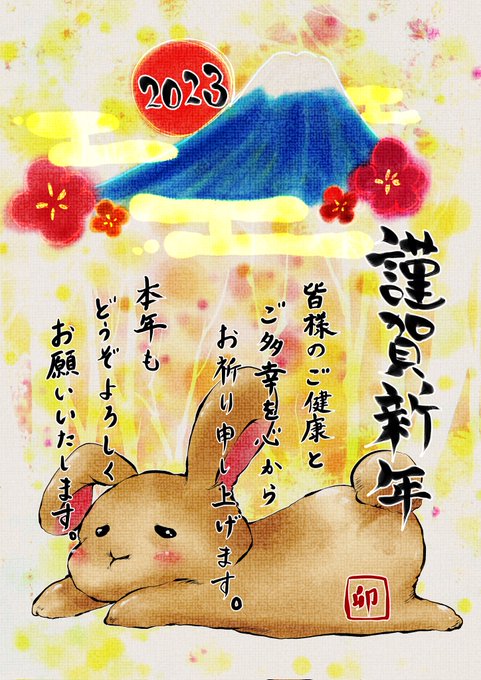 2023
謹賀新年
皆様のご健康と
ご多幸を心から
お祈り申し上げます。
本年も
どうぞよろしく
お願いいたします。
卯